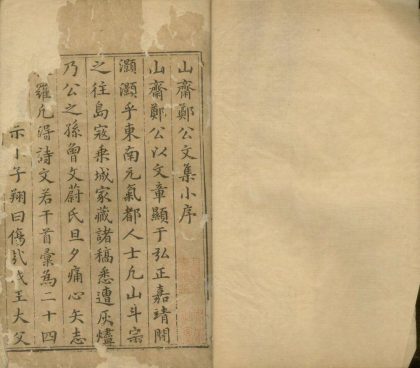 山齋鄭公文集小序
山齋鄭公以文章顯于弘正嘉靖間
灝灝乎東南元氣都人士凢山斗宗
之徃島寇乘城家藏諸稿悉遭灰燼
乃公之孫曾文蔚氏旦夕痛心矢志
羅凢得詩文若干首彙為二十四
示小子翔曰傷哉我王大父